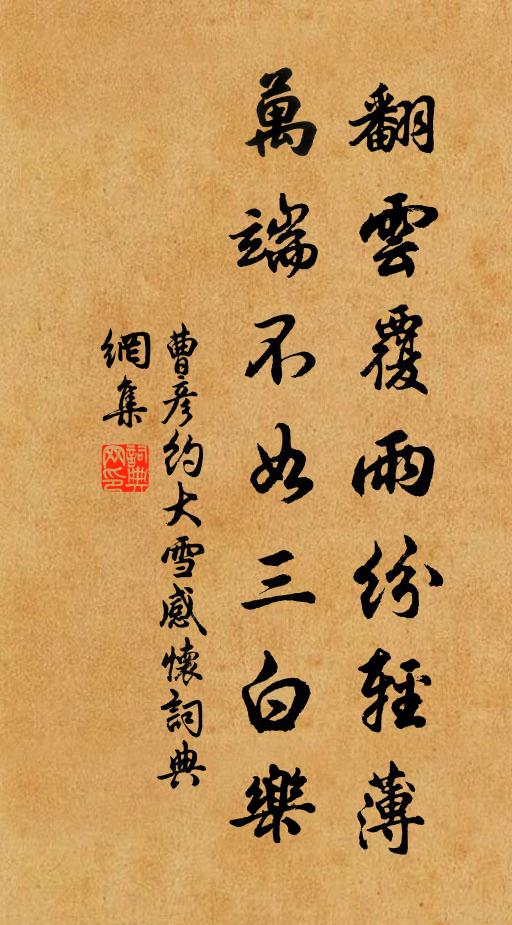 翻雲覆雨紛輕薄
萬端不如三白樂
曹彥約大雪感懷詞典
網集
詞典
网印